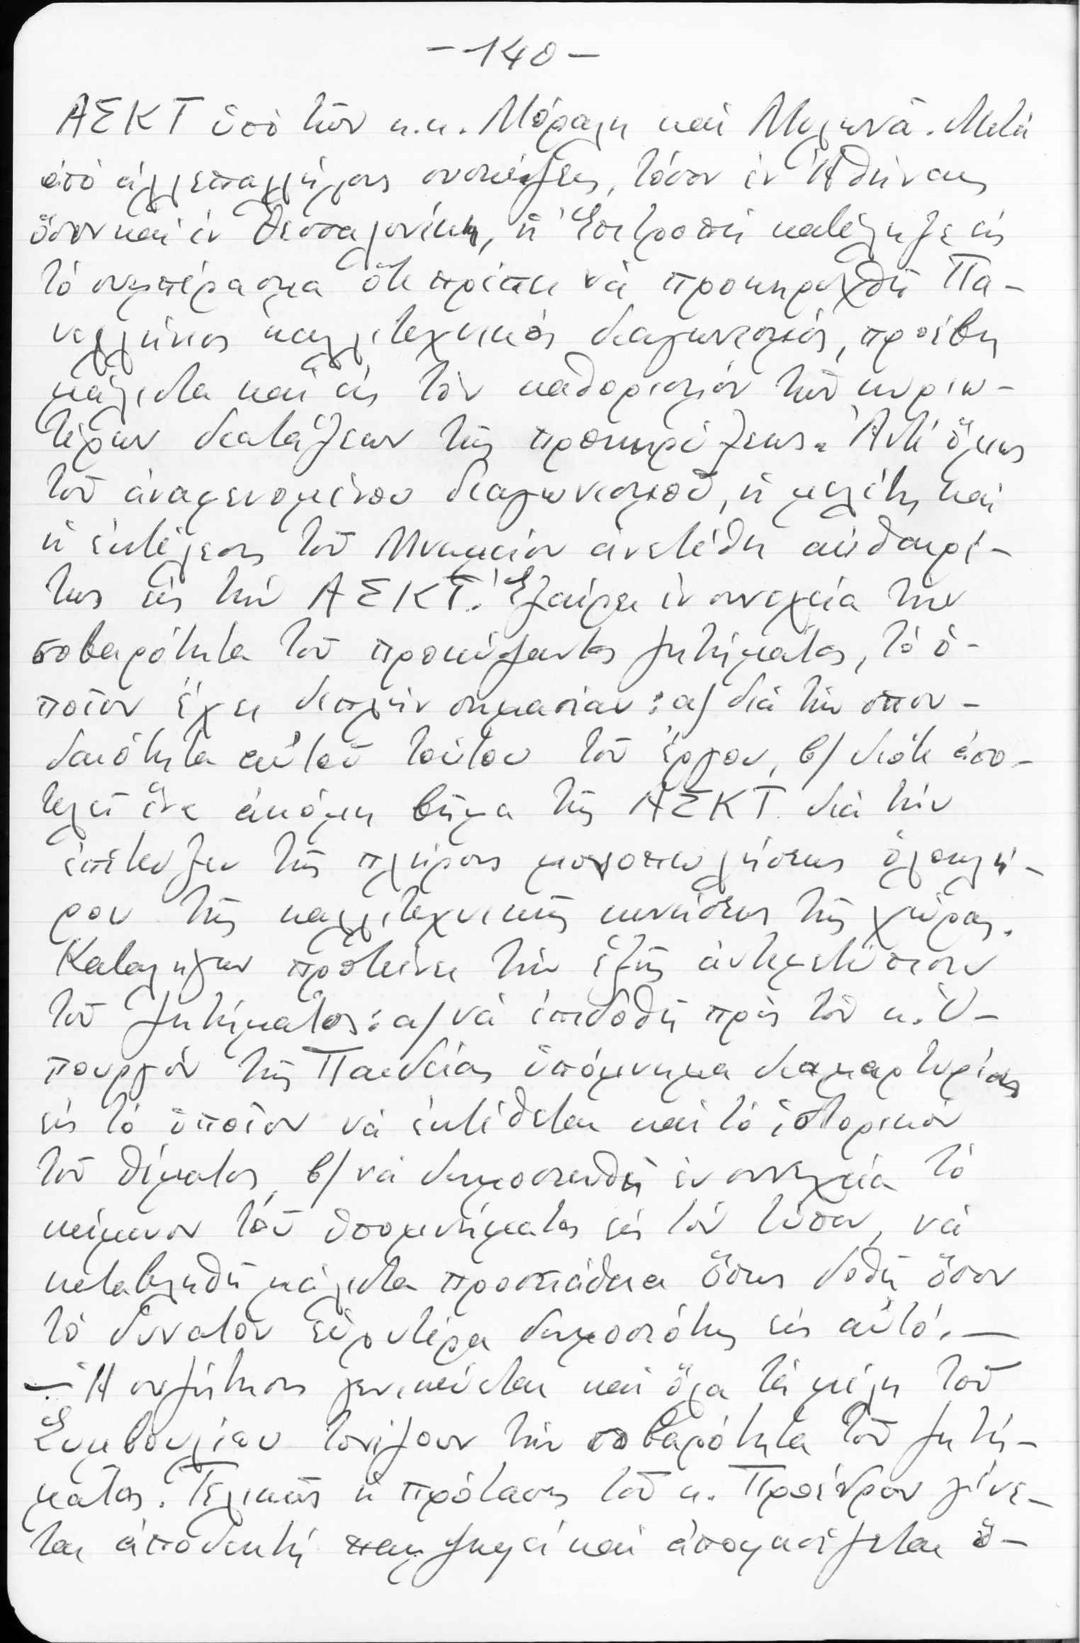 -140-
ΑΣΚΤ ὑπὸ τῶν κ.κ. Μόραλη καὶ Μυλωνᾶ. Μετὰ
ἀπὸ ἀλλεπαλλήλους συσκέψεις, τόσον ἐν Ἀθήναις
ὅσον καὶ ἐν Θεσσαλονίκῃ, ἡ Ἐπιτροπὴ κατέληξε εἰς
τὸ συμπέρασμα ὅτι πρέπει νὰ προκηρυχθῆ Πα-
νελλήνιος καλλιτεχνικὸς διαγωνισμός, προέβη
μάλιστα καὶ εἰς τὸν καθορισμὸν τῶν κυριω-
τέρων διατάξεων τῆς προκηρύξεως. Ἀντὶ ὅμως
τοῦ ἀναμενομένου διαγωνισμοῦ, ἡ μελέτη καὶ
ἡ ἐκτέλεσις τοῦ Μνημείου ἀνετέθη αὐθαιρέ-
τως εἰς τὴν ΑΣΚΤ. Ἐξαίρει ἐν συνεχείᾳ τὴν
σοβαρότητα τοῦ προκύψαντος ζητήματος, τὸ ὁ-
ποῖον ἔχει διπλῆν σημασίαν: α/ διὰ τὴν σπου-
δαιότητα αὐτοῦ τούτου τοῦ ἔργου, β/ διότι ἀπο-
τελεῖ ἕνα ἀκόμη βῆμα τῆς ΑΣΚΤ διὰ τὴν
ἐπίτευξιν τῆς πλήρους μονοπωλήσεως ὁλοκλή-
ρου τῆς καλλιτεχνικῆς κινήσεως τῆς χώρας.
Καταλήγων προτείνει τὴν ἑξῆς ἀντιμετώπισιν
τοῦ ζητήματος: α/ νὰ ἐπιδοθῆ πρὸς τὸν κ. Ὑ-
πουργὸν τῆς Παιδείας ὑπόμνημα διαμαρτυρίας
εἰς τὸ ὁποῖον νὰ ἐκτίθεται καὶ τὸ ἱστορικὸν
τοῦ θέματος, β/ νὰ δημοσιευθῆ ἐν συνεχείᾳ τὸ
κείμενον τοῦ ὑπομνήματος εἰς τὸν τύπον, νὰ
καταβληθῆ μάλιστα προσπάθεια ὅπως δοθῆ ὅσον
τὸ δυνατὸν εὐρυτέρα δημοσιότης εἰς αὐτό.—
— Ἡ συζήτησις γενικεύεται καὶ ὅλα τὰ μέλη τοῦ
Συμβουλίου τονίζουν τὴν σοβαρότητα τοῦ ζητή-
ματος. Τελικῶς ἡ πρότασις τοῦ κ. Προέδρου γίνε-
ται ἀποδεκτὴ παμψηφεὶ καὶ ἀποφασίζεται ὅ-